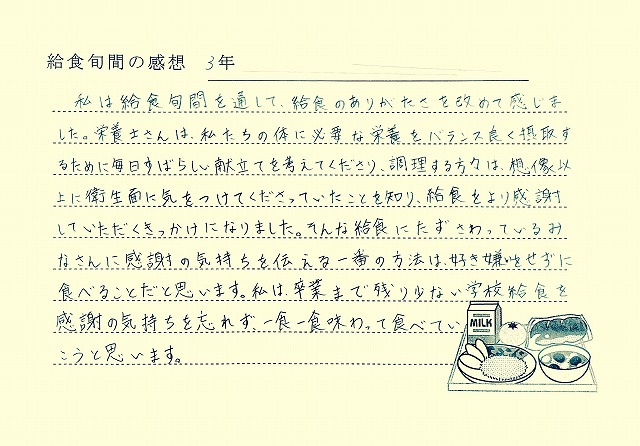 給食旬間の感想 3年
私は給食旬間を通して、給食のありがたさを改めて感じま
した。栄養士さんは、私たちの体に必要な栄養をバランス良く摂取す
るために毎日すばらしい献立てを考えてくださり、調理する方々は、想像以
上に衛生面に気をつけてくださっていたことを知り、給食をより感謝
していただくきっかけになりました。そんな給食にたずさわっているみ
なさんに感謝の気持ちを伝える一番の方法は、好き嫌いをせずに
食べることだと思います。私は、卒業まで残り少ない学校給食を
感謝の気持ちを忘れず、一食一食味わって食べてい
こうと思います。
MILK